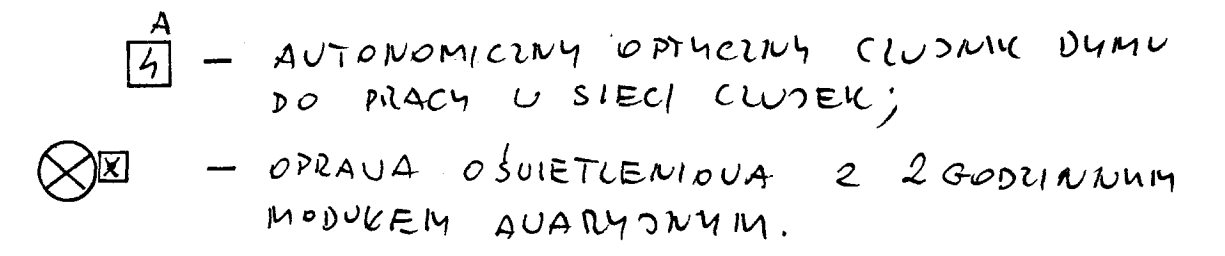 A
– AUTONOMICZNY OPTYCZNY CZUJNIK DYMU
DO PRACY W SIECI CZUJEK;
– OPRAWA OŚWIETLENIOWA Z 2 GODZINNYM
MODUŁEM AWARYJNYM.